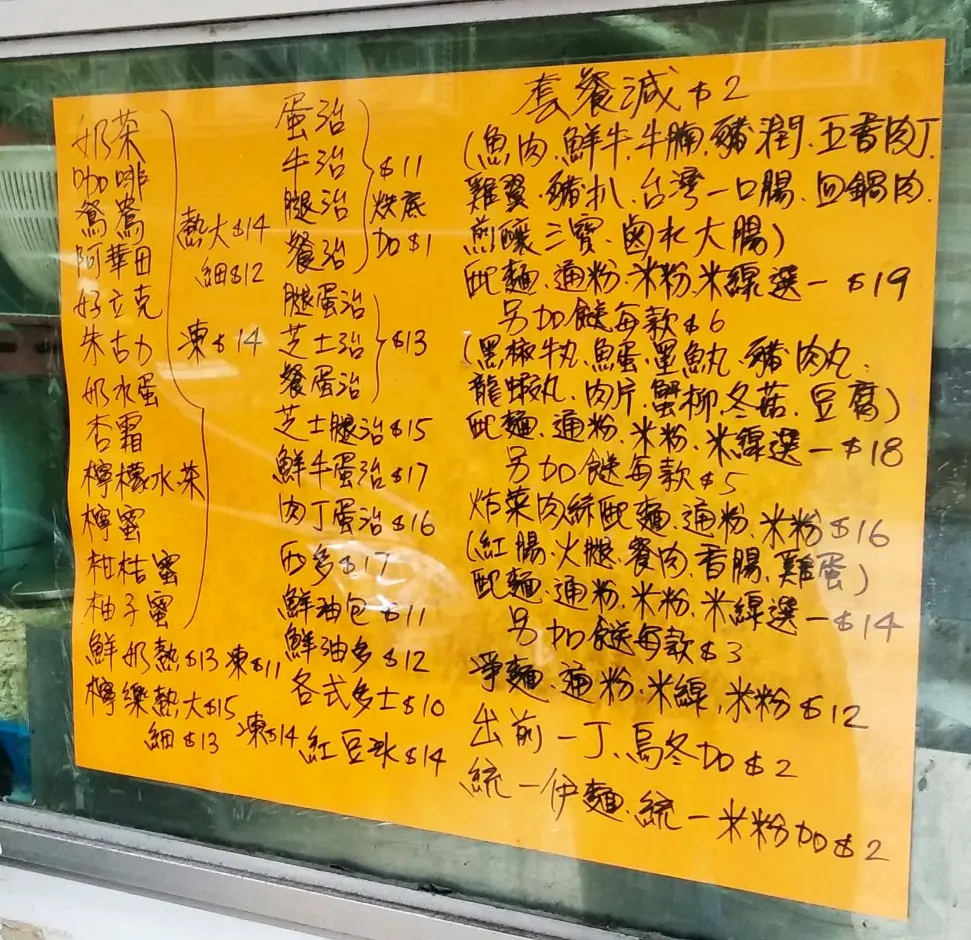 奶茶
咖啡
鴛鴦
阿華田
好立克
朱古力
奶水蛋
杏霜
檸檬水茶
檸蜜
柑桔蜜
柚子蜜
熱大$14
細$12
凍$14
鮮奶熱$13 凍$11
檸樂熱大$15
細$13 凍$14
蛋治
牛治
腿治
餐治
$11
烘底
加$1
腿蛋治
芝士治
餐蛋治
$13
芝士腿治$15
鮮牛蛋治$17
肉丁蛋治$16
西多$17
鮮油包$11
鮮油多$12
各式多士$10
紅豆冰$14
套餐減$2
(魚肉.鮮牛.牛腩.豬潤.五香肉丁.
雞翼.豬扒.台灣一口腸.回鍋肉.
煎釀三寶.鹵水大腸)
配麵.通粉.米粉.米線選一$19
另加餸每款$6
(黑椒牛丸.魚蛋.墨魚丸.豬肉丸.
龍蝦丸.肉片.蟹柳.冬菇.豆腐)
配麵.通粉.米粉.米線選一$18
另加餸每款$5
炸菜肉絲配麵.通粉.米粉$16
(紅腸.火腿.餐肉.香腸.雞蛋)
配麵.通粉.米粉.米線選一$14
另加餸每款$3
淨麵.通粉.米線.米粉$12
出前一丁.烏冬加$2
統一伊麵.統一米粉加$2